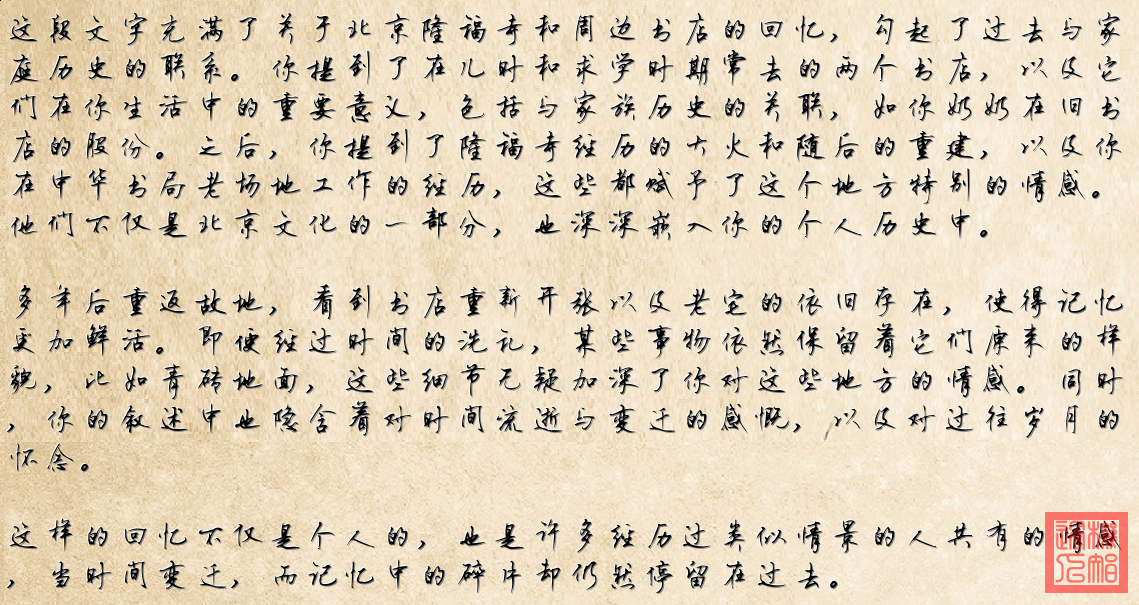 这段文字充满了关于北京隆福寺和周边书店的回忆，勾起了过去与家
庭历史的联系。你提到了在儿时和求学时期常去的两个书店，以及它
们在你生活中的重要意义，包括与家族历史的关联，如你奶奶在旧书
店的股份。之后，你提到了隆福寺经历的大火和随后的重建，以及你
在中华书局老场地工作的经历，这些都赋予了这个地方特别的情感。
他们不仅是北京文化的一部分，也深深嵌入你的个人历史中。
多年后重返故地，看到书店重新开张以及老宅的依旧存在，使得记忆
更加鲜活。即便经过时间的洗礼，某些事物依然保留着它们原来的样
貌，比如青砖地面，这些细节无疑加深了你对这些地方的情感。同时
，你的叙述中也隐含着对时间流逝与变迁的感慨，以及对过往岁月的
怀念。
这样的回忆不仅是个人的，也是许多经历过类似情景的人共有的情感
，当时间变迁，而记忆中的碎片却仍然停留在过去。